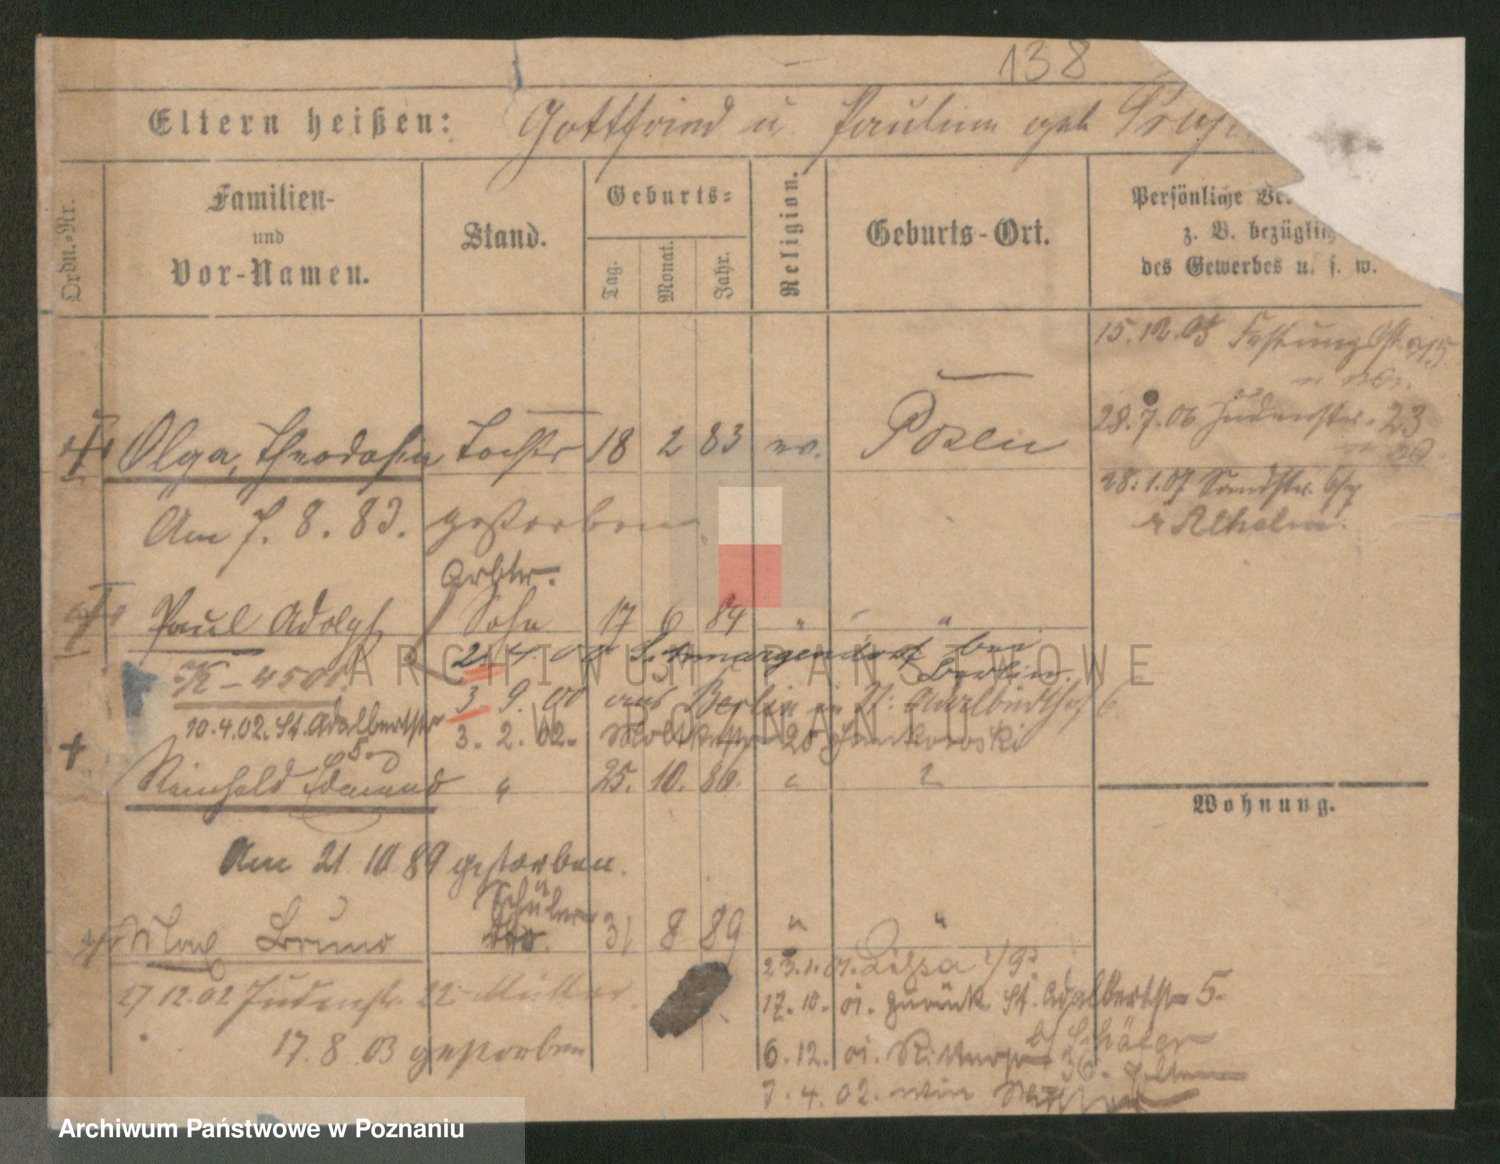 138
Eltern heißen: Gottfried u Pauline geb
Ordn.-Nr.
Familien-
und
Vor-Namen.
Stand.
Geburts-
Tag.
Monat.
Jahr.
Religion.
Geburts-Ort.
Persönliche
z. B. bezüglich
des Gewerbes u. s. w.
15. 12. 03 Festung
28. 7. 06 Judenstr. 23
28. 1. 07 Sandstr.
Olga, Theodosia Tochter 18 2 83 ev. Posen
Am 7. 8. 83. gestorben
Arbtr.
Paul Adolph Sohn 17 6 84 " "
2. 4. 00 Schmargendorf bei
Berlin.
3 9. 00 aus Berlin in St. Adalbertstr 6.
10.4.02. St. Adalbertstr
5.
3. 2. 02. 20
Reinhold Edmund " 25. 10. 86. " "
Wohnung.
Am 21. 10 89 gestorben.
Schüler
Max Bruno 31 8 89 " "
23. 1. 01. Lissa
17.12.02 Judenstr. 22 Mutter.
17. 10. 01. zurück St. Adalbertstr 5.
b/ Schäler
17. 8 03 gestorben
6. 12. 01. Ritterstr 36.
7. 4. 02.
ARCHIWUM PAŃSTWOWE
W POZNANIU
Archiwum Państwowe w Poznaniu